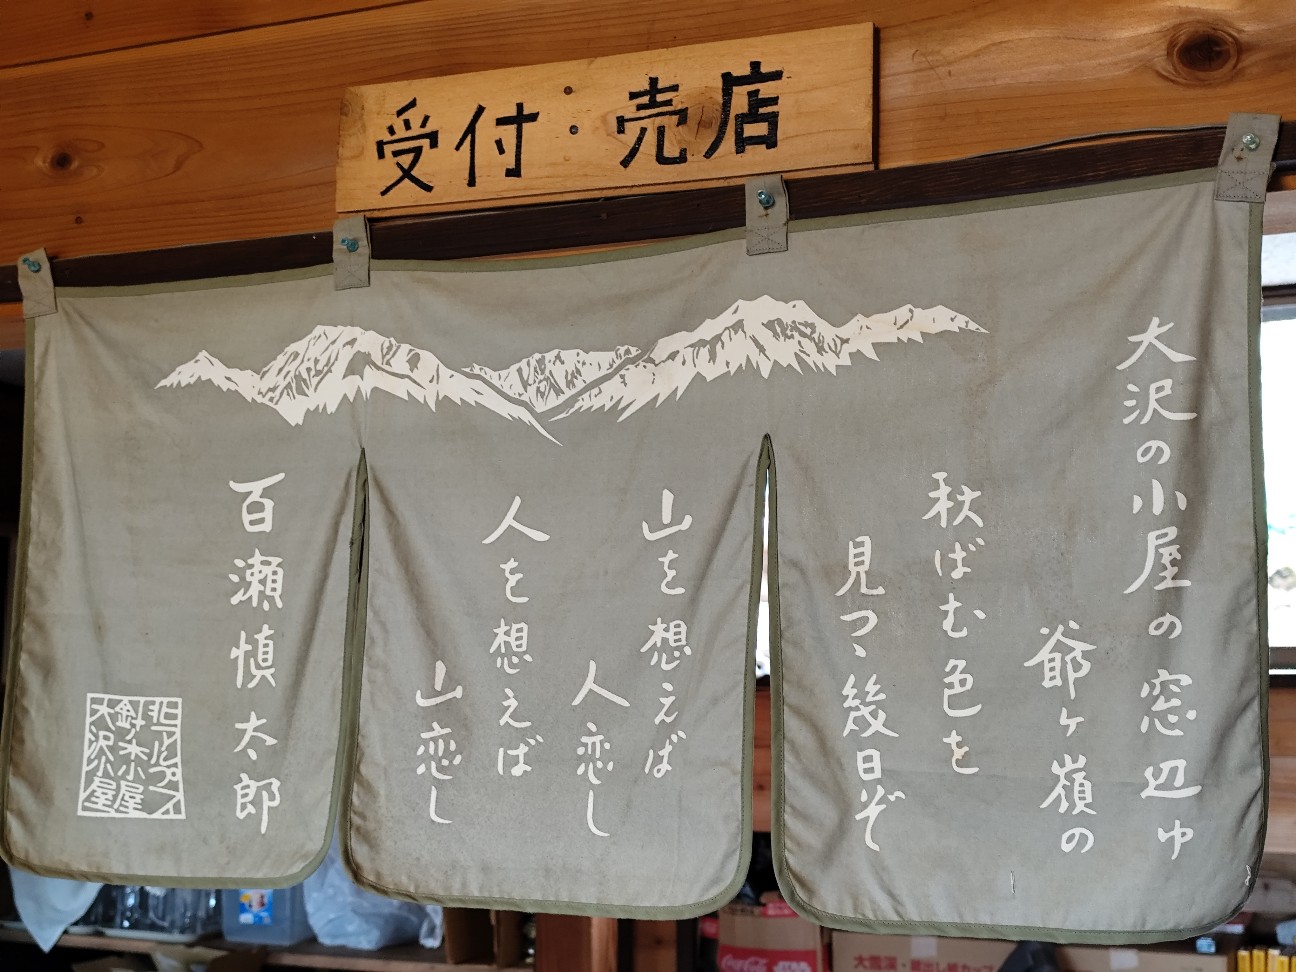 受付・売店
大沢の小屋の窓辺ゆ
爺ヶ嶺の
秋ばむ色を
見つゝ幾日ぞ
山を想えば
人恋し
人を想えば
山恋し
百瀬慎太郎
北アルプス
針ノ木小屋
大沢小屋
Coca-Cola